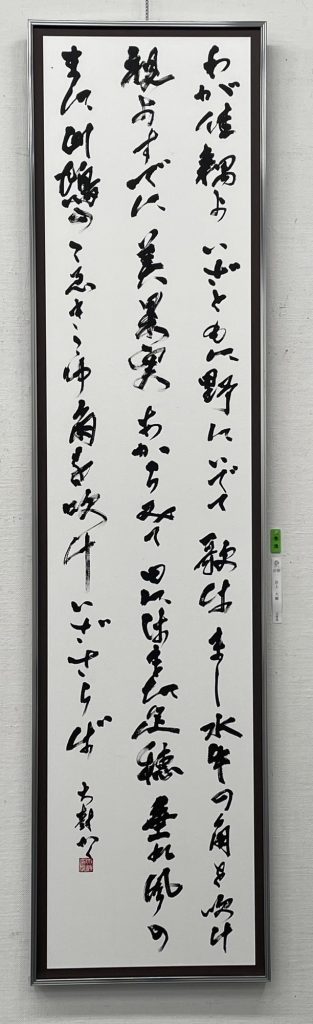 わが佳耦よ いざともに野にいでて 歌はまし水牛の角を吹け
視よすでに 美果実 あからみて 田にはまた足穂 垂れ風の
まに山鳩のこゑきこゆ角を吹け いざさらば